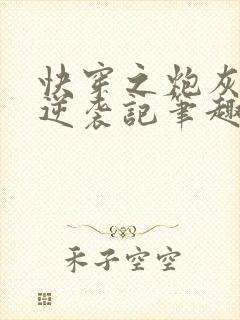 快穿之炮灰
逆袭記筆趣
禾子空空